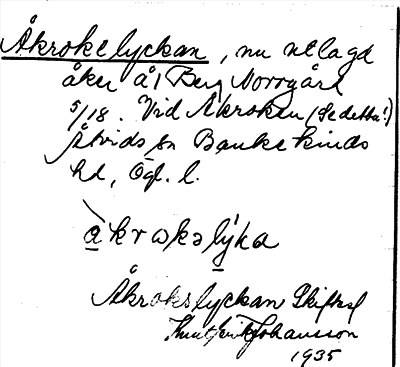 Åkrokelyckan, nu utlagd
åker å 1 Berg Norrgård
5/18. Vid Åkroken (Se detta!)
Åtvids sn Bankekinds
hd, Ögl. l.
åkrωkəlýka
Åkrokslyckan Skifksl
Knut Erik Johansson
1935